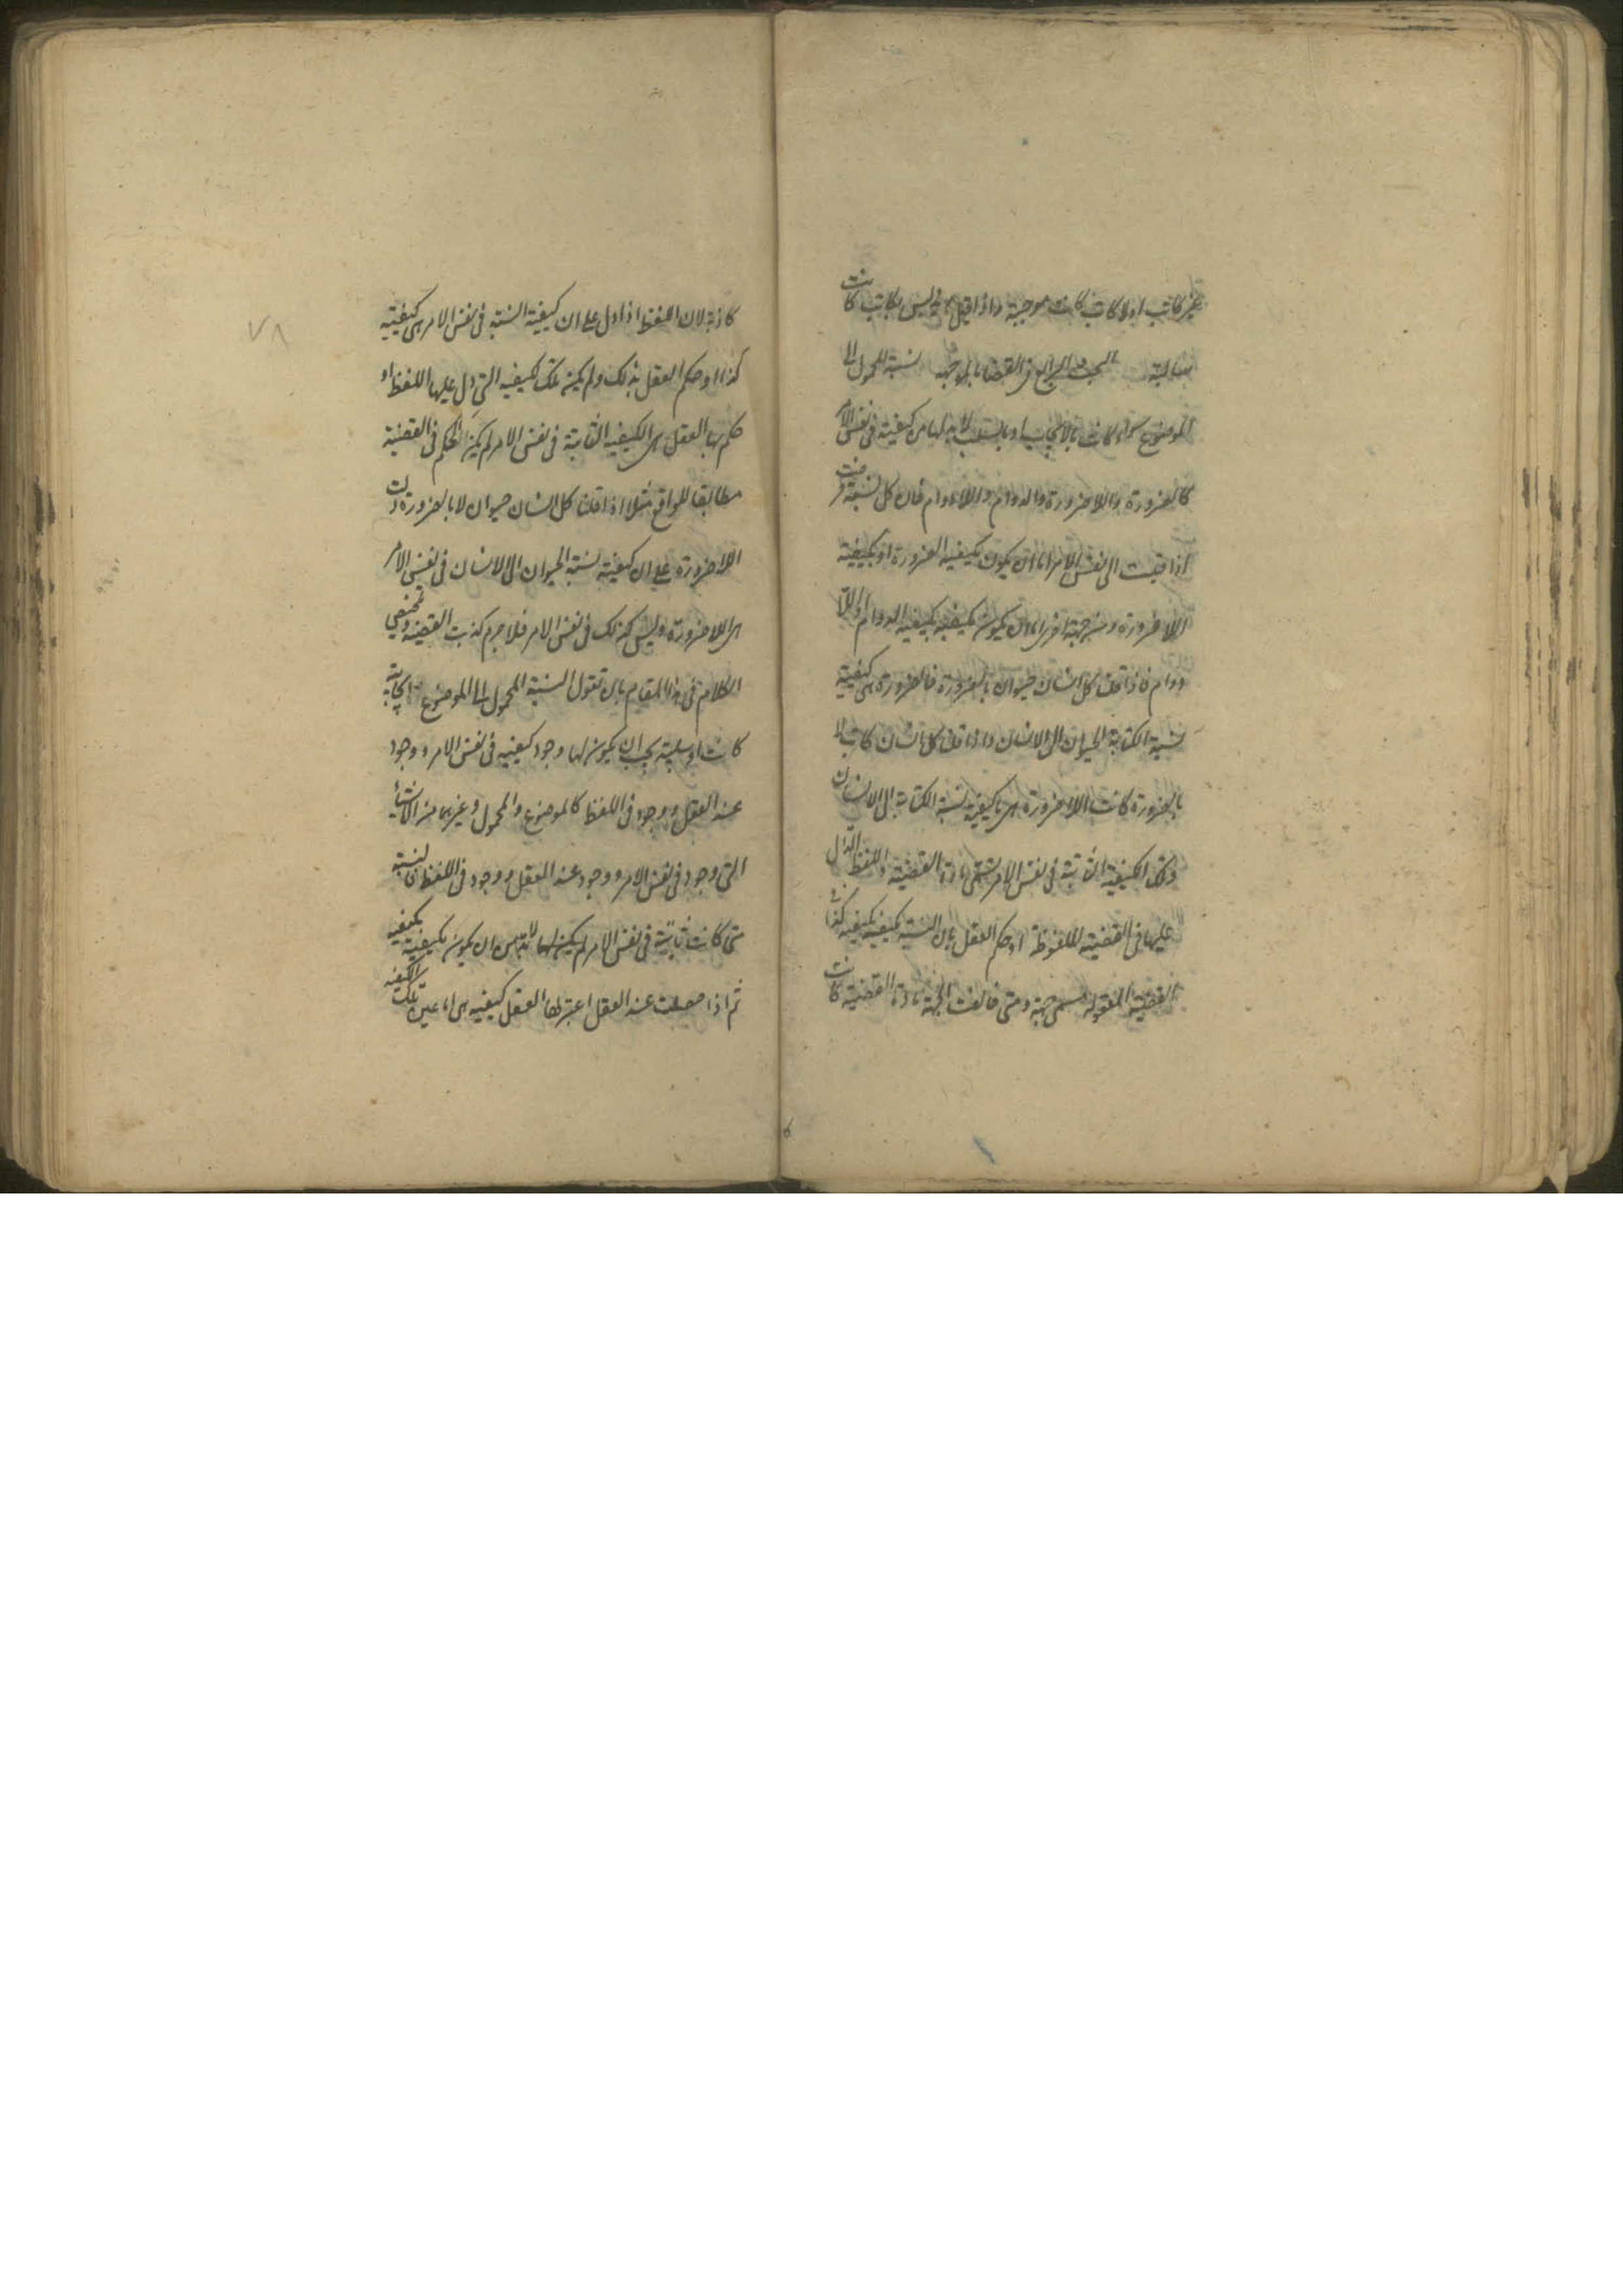 غير كاتب او لا كاتب كانت موجبة واذا قيل ليس بكاتب كانت
سالبة البحث الرابع فى القضايا الموجهة نسبة المحمول الى
الموضوع سواء كانت بالايجاب او بالسلب لابد لها من كيفية فى نفس الامر
كالضرورة واللاضرورة والدوام واللادوام فان كل نسبة فرضت
اذا قيست الى نفس الامر اما ان يكون بكيفية الضرورة او بكيفية
اللاضرورة ومن جهة اخرى اما ان يكون بكيفية الدوام او اللا
دوام فاذا قلنا كل انسان حيوان بالضرورة فالضرورة هى كيفية
نسبة الحيوان الى الانسان واذا قلنا كل انسان كاتب لا
بالضرورة كانت اللاضرورة هى كيفية نسبة الكتابة الى الانسان
وتلك الكيفية الثابتة فى نفس الامر تسمى مادة القضية واللفظ الدال
عليها فى القضية الملفوظة او حكم العقل بان النسبة مكيفة بكيفية كذا فى
القضية المعقولة يسمى جهة ومتى خالفت الجهة مادة القضية كانت
كاذبة لان اللفظ اذا دل على ان كيفية النسبة فى نفس الامر هى كيفية
كذا او حكم العقل بذلك ولم يكن تلك الكيفية التى دل عليها اللفظ او
حكم بها العقل هى الكيفية الثابتة فى نفس الامر لم يكن الحكم فى القضية
مطابقا للواقع مثلا اذا قلنا كل انسان حيوان لا بالضرورة دلت
اللاضرورة على ان كيفية نسبة الحيوان الى الانسان فى نفس الامر
هى اللاضرورة وليس كذلك فى نفس الامر فلاجرم كذبت القضية وتلخيص
الكلام فى هذا المقام بان نقول نسبة المحمول الى الموضوع ايجابية
كانت او سلبية يجب ان يكون لها وجود كيفية فى نفس الامر ووجود
عند العقل ووجود فى اللفظ كالموضوع والمحمول وغيرهما من الاشياء
التى وجود فى نفس الامر ووجود عند العقل ووجود فى اللفظ فالنسبة
متى كانت ثابتة فى نفس الامر لم يكن لها بد من ان يكون مكيفة بكيفية
ثم اذا حصلت عند العقل اعتبر لها العقل كيفية هى اما عين تلك الكيفية
٧٨